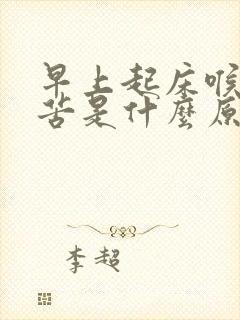 早上起床喉
苦是什麼原
李超